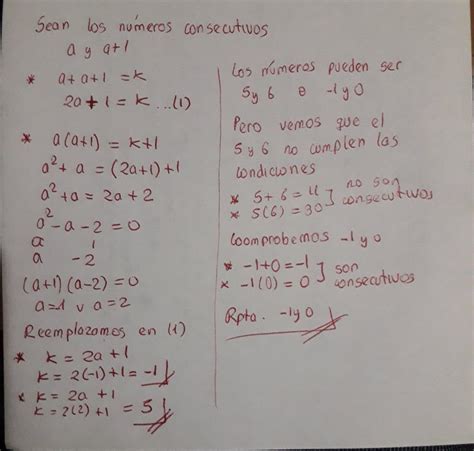 Sean los números consecutivos
a y a+1
* a+a+1 = k
2a+1 = k ...(1)
* a(a+1) = k+1
a²+a = (2a+1)+1
a²+a = 2a+2
a²-a-2=0
a 1
a -2
(a+1)(a-2)=0
a=-1 v a=2
Reemplazamos en (1)
* k = 2a+1
k = 2(-1)+1=-1
* k = 2a+1
k = 2(2)+1 = 5
Los números pueden ser
5 y 6 o -1 y 0
Pero vemos que el
5 y 6 no complen las
condiciones
* 5+6=11 ] no son
* 5(6)=30 ] consecutivos
Comprobemos -1 y 0
* -1+0=-1 ] son
* -1(0)=0 ] consecutivos
Rpta. -1 y 0